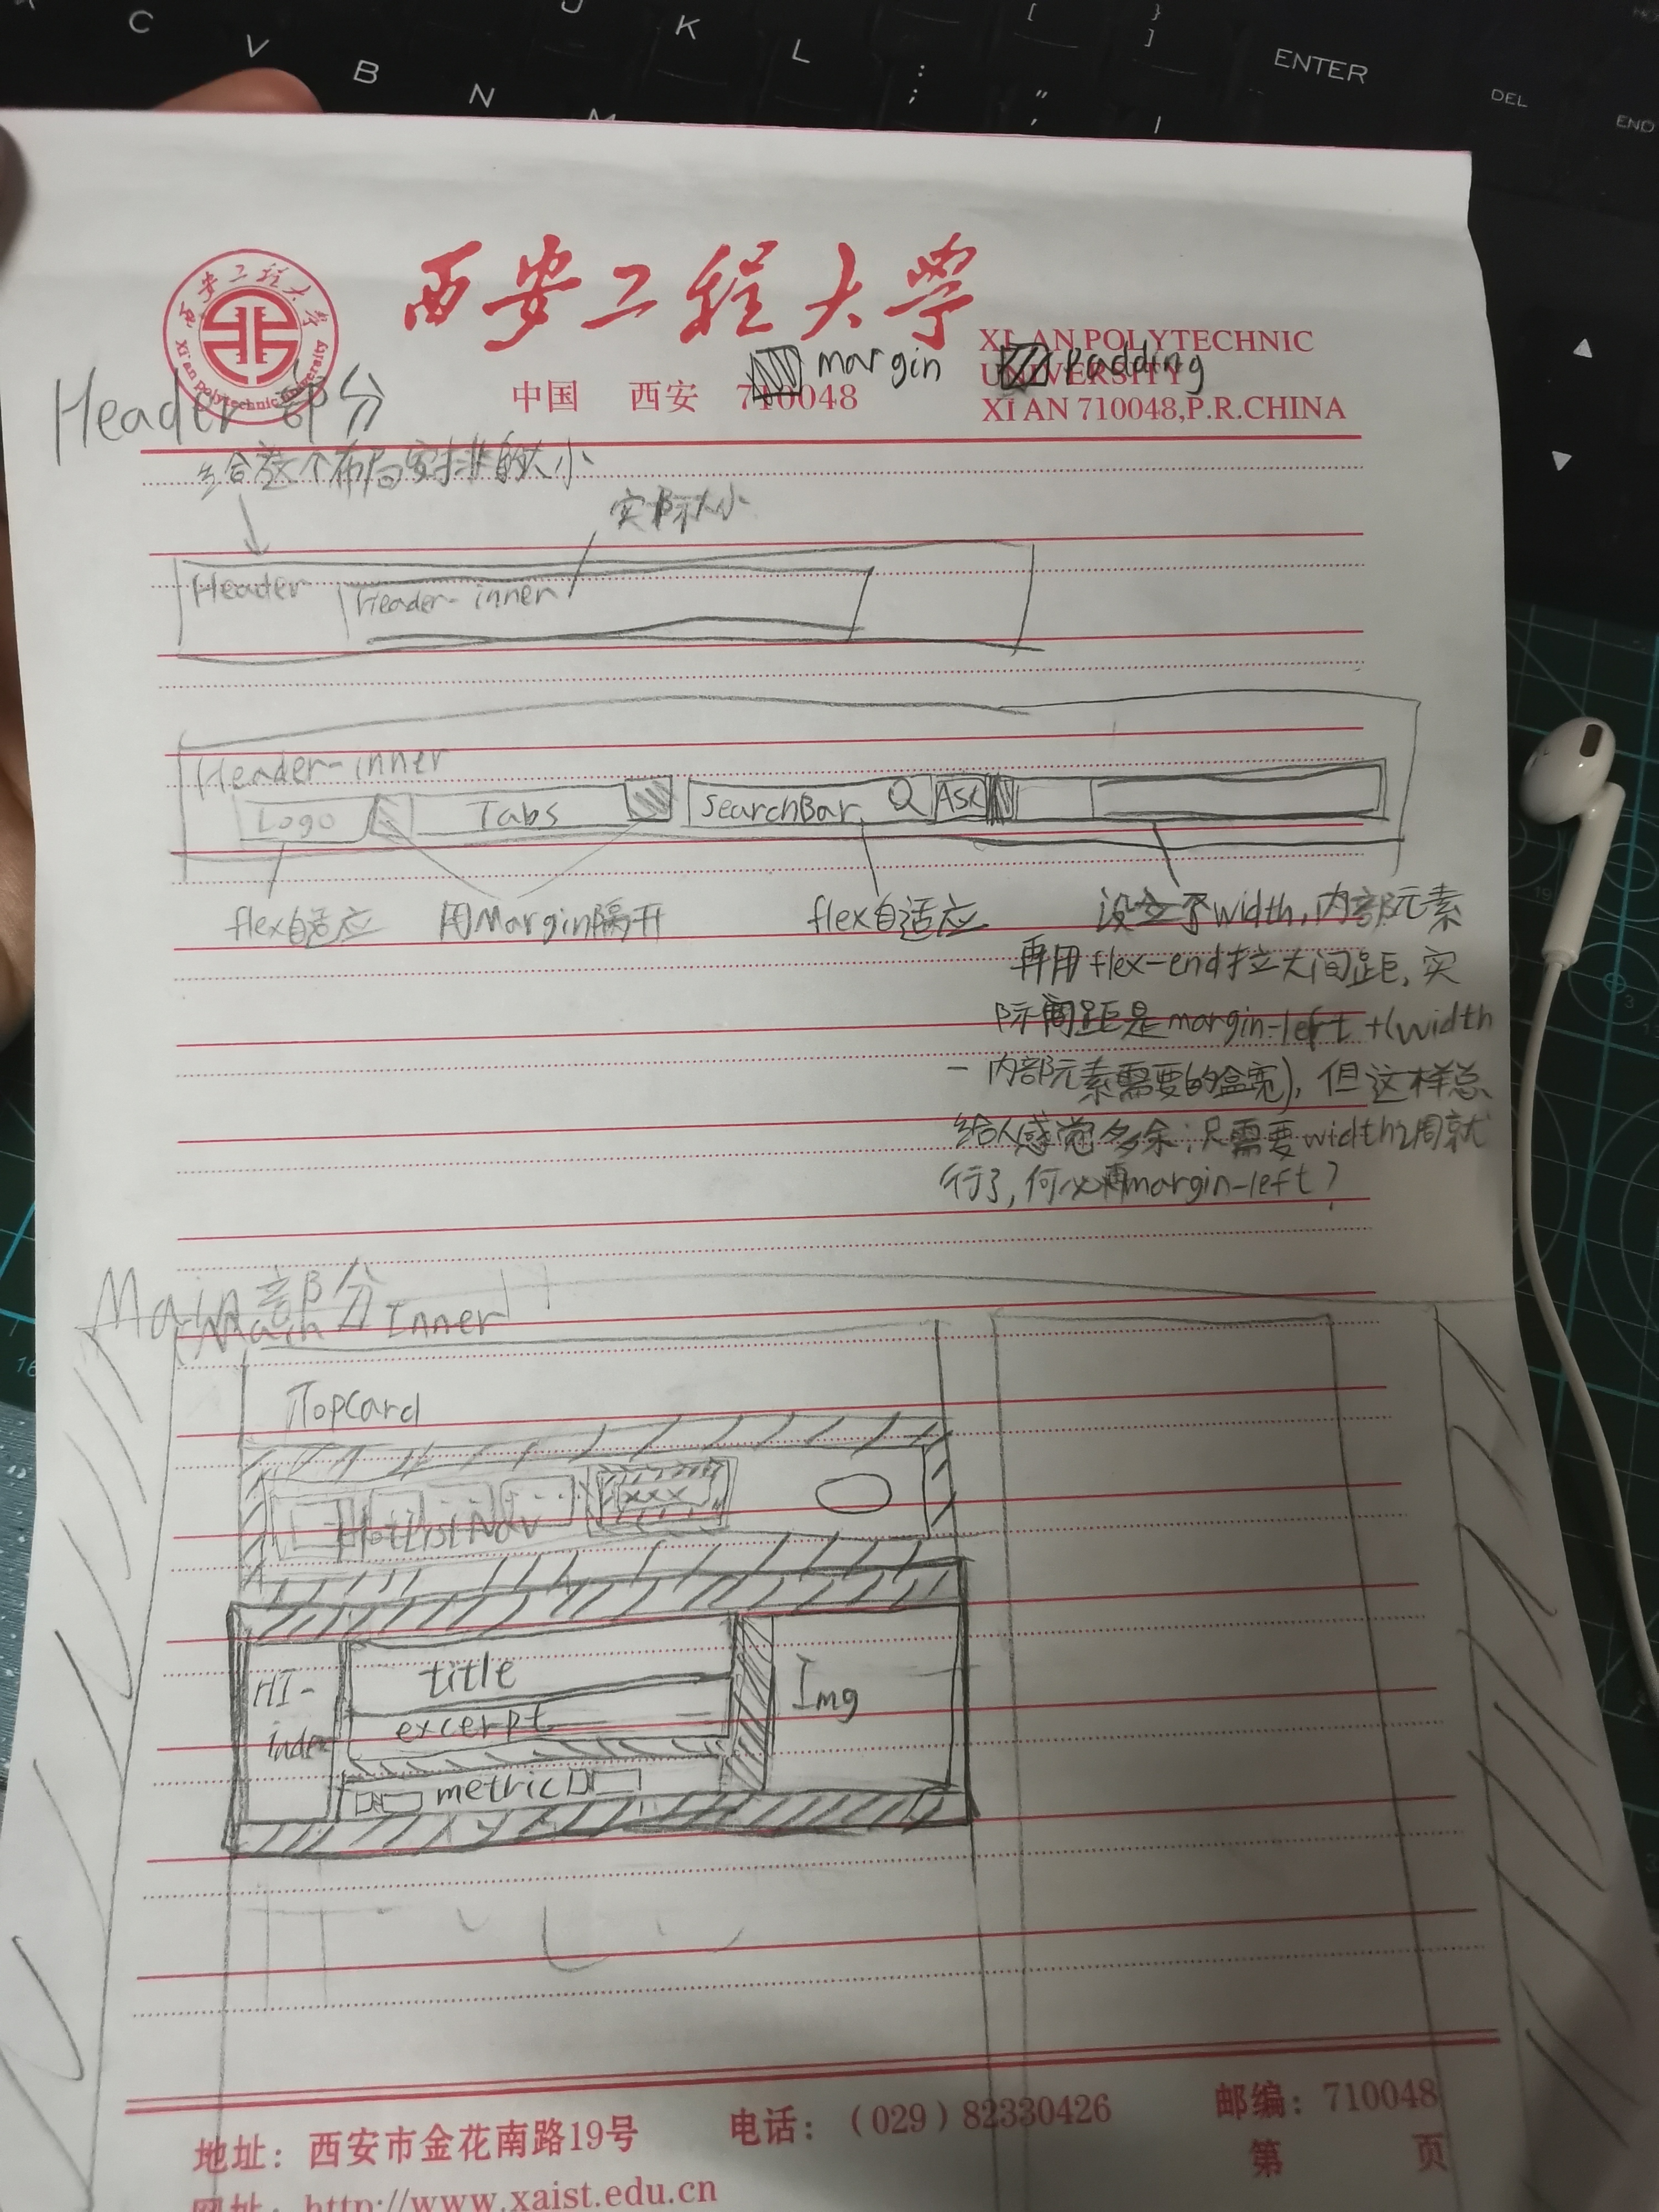 C
V
B
N
M
J
K
L
:
;
"
'
{
[
}
]
ENTER
DEL
END
西安工程大学
西安工程大学
Xi'an Polytechnic University
XI'AN POLYTECHNIC
UNIVERSITY
XI'AN 710048,P.R.CHINA
中国 西安 710048
margin
padding
Header部分
给这个布局安排的大小
实际大小
Header
Header-inner
Header-inner
Logo
Tabs
SearchBar
Ask
flex自适应
用Margin隔开
flex自适应
设立了width,内部元素
再用flex-end拉大间距,实
际间距是margin-left+(width
-内部元素需要的盒宽),但这样总
给人感觉多余:只需要width调就
行了,何必再margin-left?
Main部分
Main Inner
TopCard
HotListNav
xxx
HI-
index
title
excerpt
metric
Img
地址:西安市金花南路19号
电话:(029)82330426
邮编:710048
网址:http://www.xaist.edu.cn
第 页